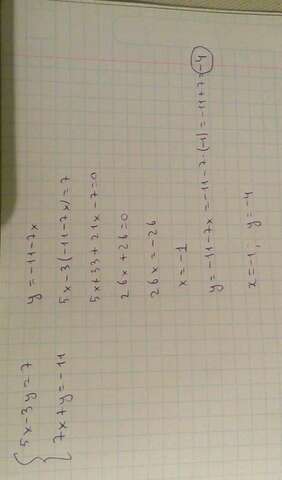 { 5x-3y=7
7x+y=-11
y=-11-7x
5x-3(-11-7x)=7
5x+33+21x-7=0
26x+26=0
26x=-26
x=-1
y=-11-7x=-11-7·(-1)=-11+7=-4
x=-1; y=-4